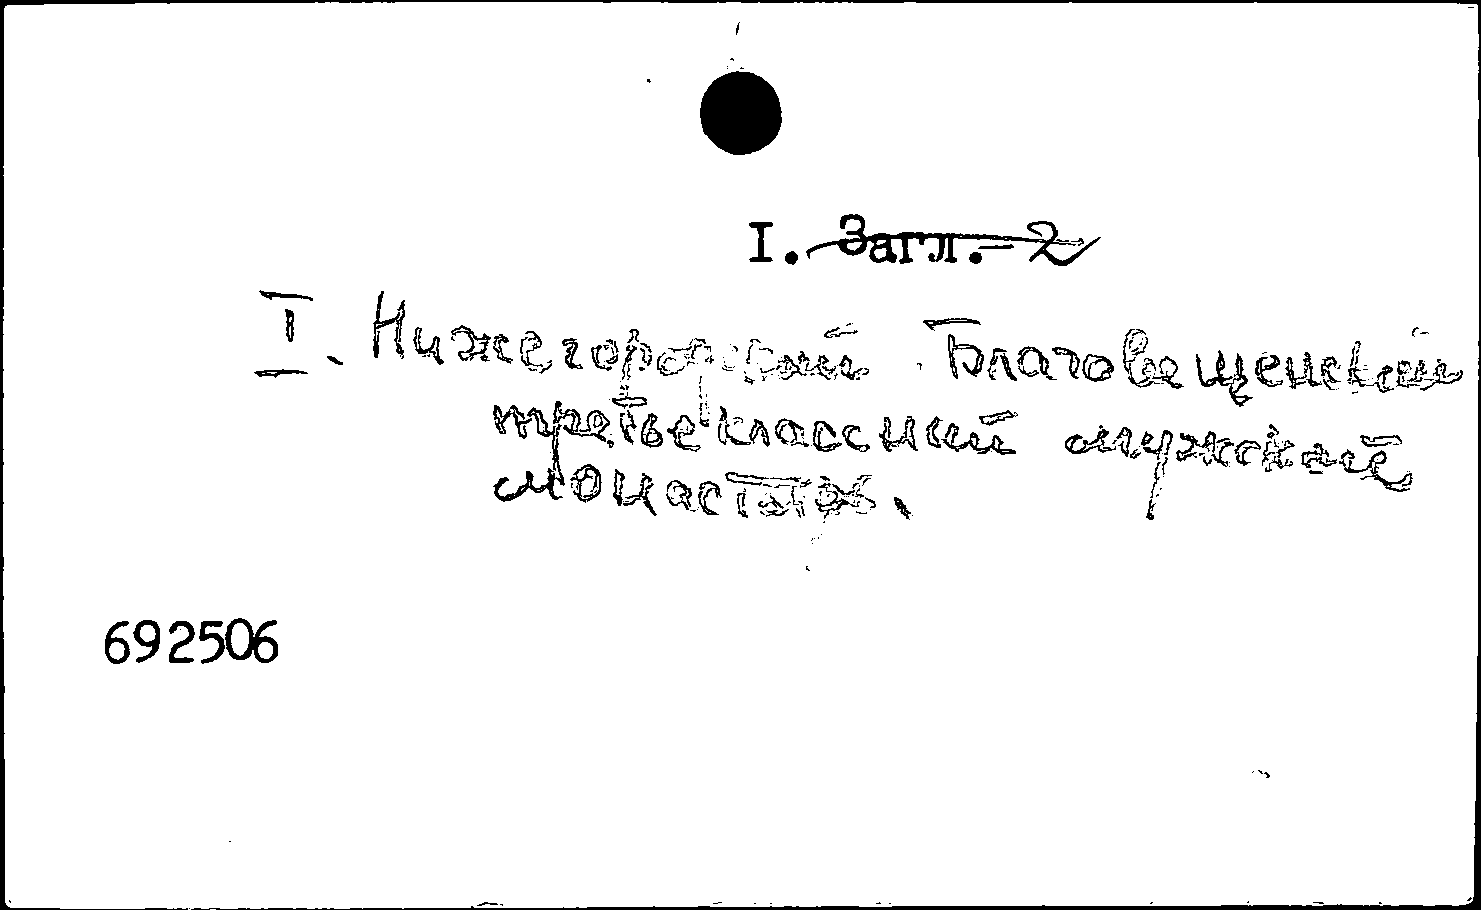 I. Загл.-2
I. Нижегородский Благовещенский
третьеклассный мужской
монастырь.
692506